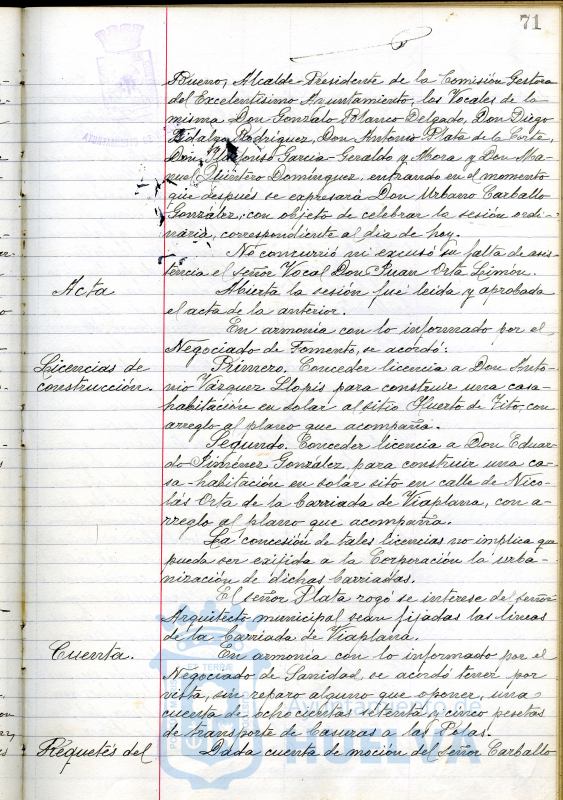 71
Bueno, Alcalde-Presidente de la Comisión Gestora
del Excelentísimo Ayuntamiento, los Vocales de la
misma Don Gonzalo Blanco Delgado, Don Diego
Hidalgo Rodríguez, Don Antonio Plata de la Corte,
Don Ildefonso García-Geraldo y Mora y Don Ma-
nuel Quintero Domínguez, entrando en el momento
que después se expresará Don Urbano Carballo
González, con objeto de celebrar la sesión ordi-
naria, correspondiente al día de hoy.
No concurrió ni excusó su falta de asis-
tencia el señor Vocal Don Juan Orta Limón.
Acta
Abierta la sesión fué leida y aprobada
el acta de la anterior.
En armonía con lo informado por el
Negociado de Fomento, se acordó:
Licencias de
construcción.
Primero. Conceder licencia a Don Anto-
nio Vázquez Llopis para construir una casa-
habitación en solar al sitio Huerto de Tito, con
arreglo al plano que acompaña.
Segundo. Conceder licencia a Don Eduar-
do Jiménez González, para construir una ca-
sa-habitación en solar sito en calle de Nico-
lás Orta de la barriada de Viaplana, con a-
rreglo al plano que acompaña.
La concesión de tales licencias no implica que
pueda ser exijida a la Corporación la urba-
nización de dichas barriadas.
El señor Plata rogó se interese del señor
Arquitecto municipal sean fijadas las líneas
de la barriada de Viaplana.
Cuenta.
En armonía con lo informado por el
Negociado de Sanidad, se acordó tener por
vista, sin reparo alguno que oponer, una
cuenta de ochocientas setenta y cinco pesetas
de transporte de basuras a las
Requetés del
Dada cuenta de moción del señor Carballo
Ayuntamiento de